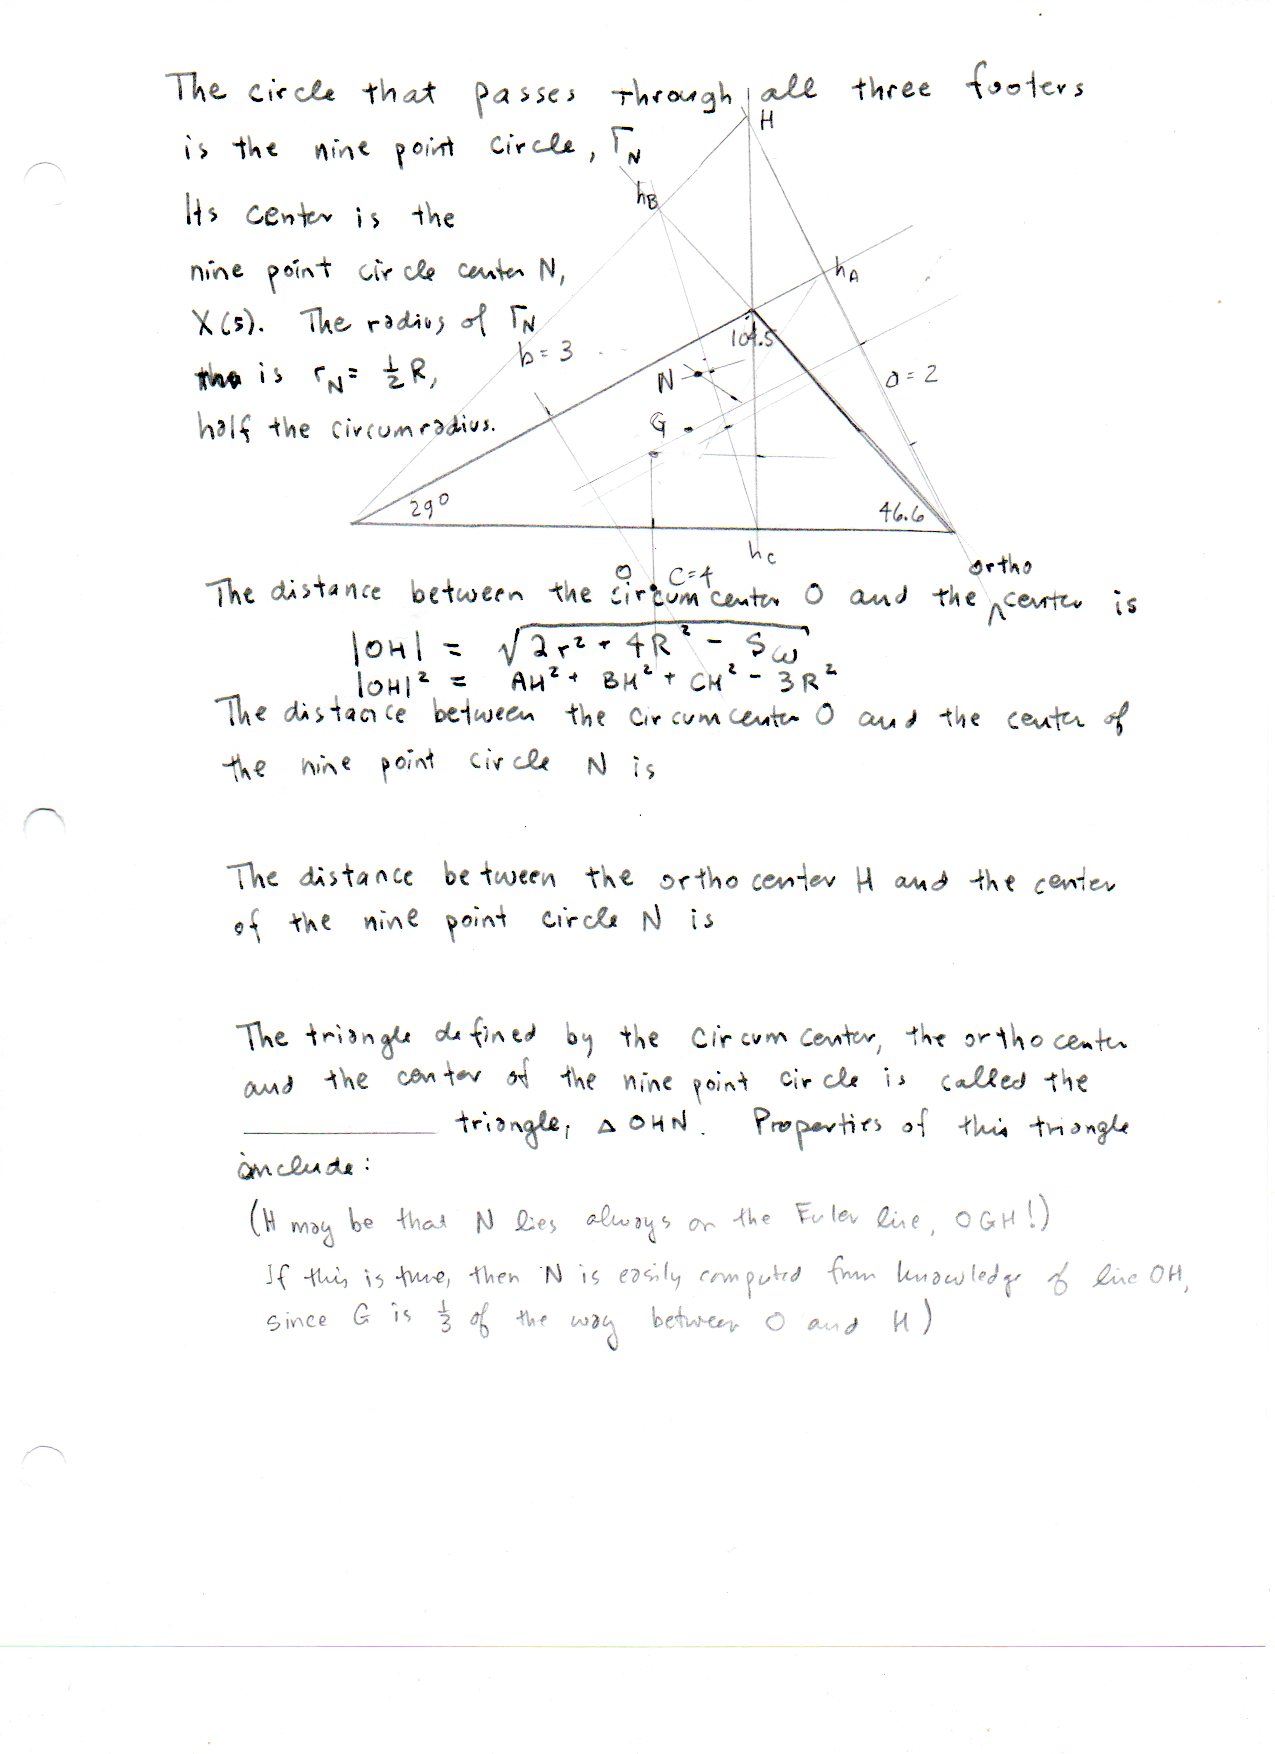 The circle that passes through all three footers
H
is the nine point circle, ΓN
hB
Its center is the
nine point circle center N,
hA
X(5). The radius of ΓN
104.5
b = 3
is rN = ½ R,
N
a = 2
G
half the circumradius.
29°
46.6
hC
O
C=4
ortho
The distance between the circumcenter O and the ^center is
|OH| = √2r² + 4R² - Sω
|OH|² = AH² + BH² + CH² - 3R²
The distance between the circumcenter O and the center of
the nine point circle N is
The distance between the orthocenter H and the center
of the nine point circle N is
The triangle defined by the circumcenter, the orthocenter
and the center of the nine point circle is called the
__________ triangle, △OHN. Properties of this triangle
include:
(It may be that N lies always on the Euler line, OGH!)
If this is true, then N is easily computed from knowledge of line OH,
since G is ⅓ of the way between O and H)